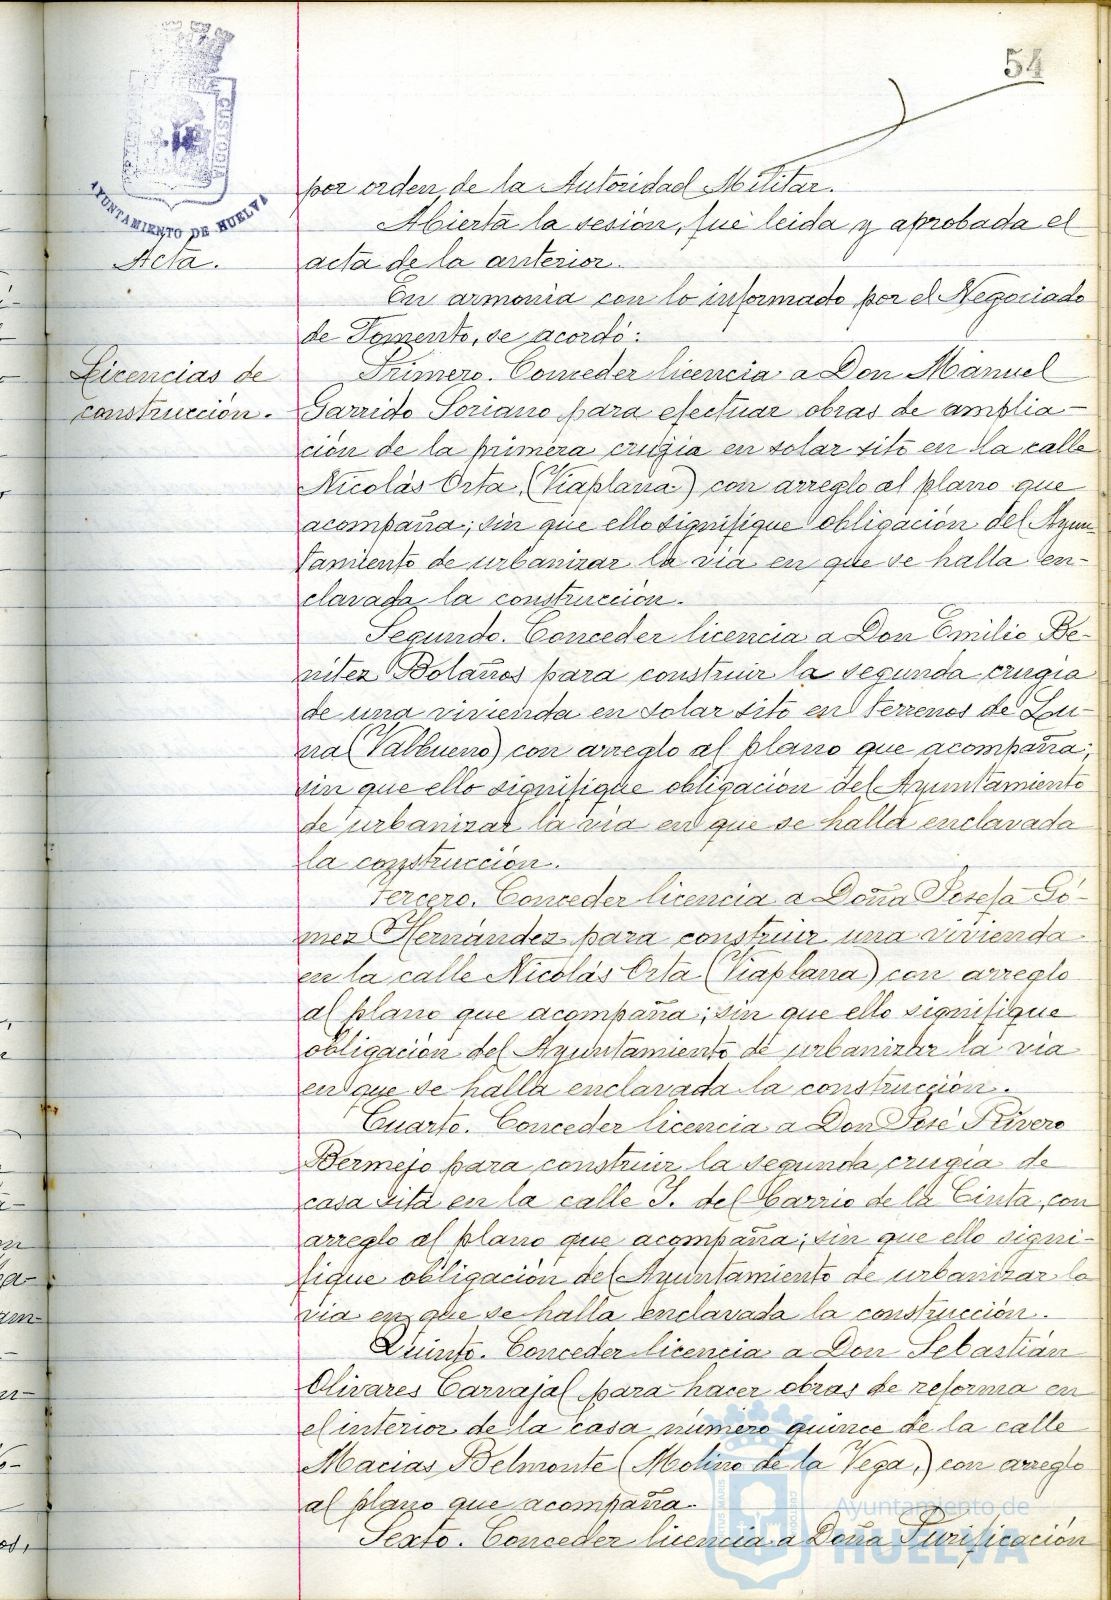 54
CUSTODI
AYUNTAMIENTO DE HUELVA
por orden de la Autoridad Militar.
Abierta la sesión, fué leida y aprobada el
Acta.
acta de la anterior.
En armonia con lo informado por el Negociado
de Fomento, se acordó:
Licencias de
construcción.
Primero. Conceder licencia a Don Manuel
Garrido Soriano para efectuar obras de amplia-
ción de la primera crugia en solar sito en la calle
Nicolás Orta (Viaplana) con arreglo al plano que
acompaña; sin que ello signifique obligación del Ayun-
tamiento de urbanizar la via en que se halla en-
clavada la construcción.
Segundo. Conceder licencia a Don Emilio Be-
nitez Bolaños para construir la segunda crugia
de una vivienda en solar sito en terrenos de Lu-
na (Valbueno) con arreglo al plano que acompaña;
sin que ello signifique obligación del Ayuntamiento
de urbanizar la via en que se halla enclavada
la construcción.
Tercero. Conceder licencia a Doña Josefa Gó-
mez Hernández para construir una vivienda
en la calle Nicolás Orta (Viaplana) con arreglo
al plano que acompaña; sin que ello signifique
obligación del Ayuntamiento de urbanizar la via
en que se halla enclavada la construcción.
Cuarto. Conceder licencia a Don José Rivero
Bermejo para construir la segunda crugia de
casa sita en la calle J. del barrio de la Cinta, con
arreglo al plano que acompaña; sin que ello signi-
fique obligación del Ayuntamiento de urbanizar la
via en que se halla enclavada la construcción.
Quinto. Conceder licencia a Don Sebastián
Olivares Carvajal para hacer obras de reforma en
el interior de la casa número quince de la calle
Macias Belmonte (Molino de la Vega,) con arreglo
al plano que acompaña.
Sexto. Conceder licencia a Doña Purificación
Ayuntamiento de
HUELVA